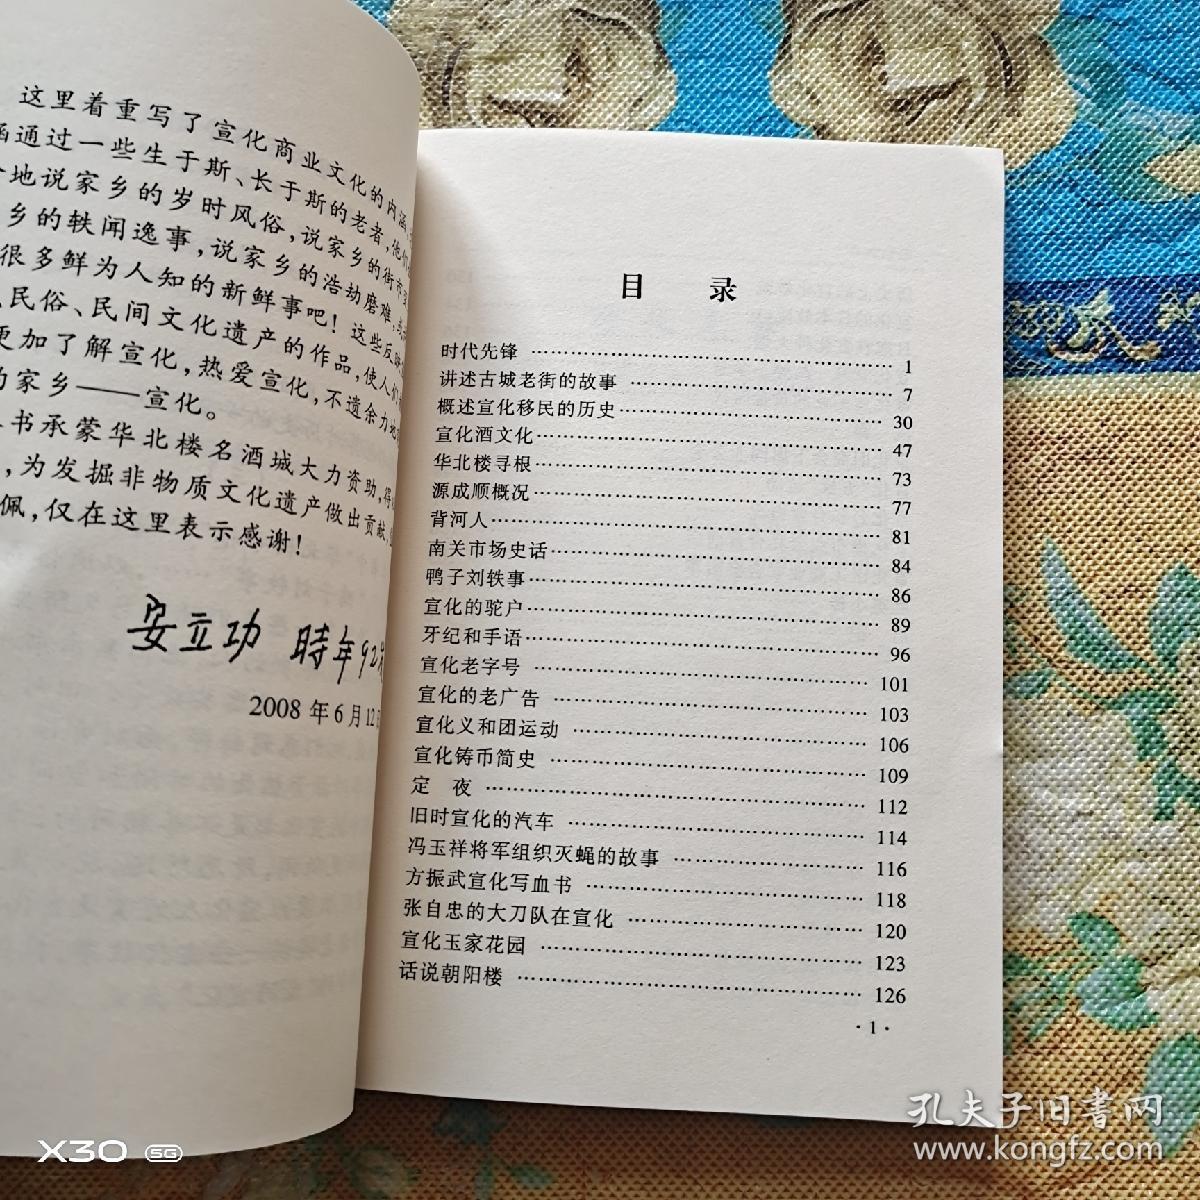 这里着重写了宣化商业文化的内涵,
涵通过一些生于斯、长于斯的老者,他们
地说家乡的岁时风俗,说家乡的街市
乡的轶闻逸事,说家乡的浩劫磨难,
很多鲜为人知的新鲜事吧!这些反
民俗、民间文化遗产的作品,使人们
更加了解宣化,热爱宣化,不遗余力地
的家乡——宣化。
书承蒙华北楼名酒城大力资助,得
,为发掘非物质文化遗产做出贡献,
佩,仅在这里表示感谢!
安立功 時年92
2008年6月12日
目 录
时代先锋 …… 1
讲述古城老街的故事 …… 7
概述宣化移民的历史 …… 30
宣化酒文化 …… 47
华北楼寻根 …… 73
源成顺概况 …… 77
背河人 …… 81
南关市场史话 …… 84
鸭子刘轶事 …… 86
宣化的驼户 …… 89
牙纪和手语 …… 96
宣化老字号 …… 101
宣化的老广告 …… 103
宣化义和团运动 …… 106
宣化铸币简史 …… 109
定 夜 …… 112
旧时宣化的汽车 …… 114
冯玉祥将军组织灭蝇的故事 …… 116
方振武宣化写血书 …… 118
张自忠的大刀队在宣化 …… 120
宣化玉家花园 …… 123
话说朝阳楼 …… 126
·1·
X30 5G
孔夫子旧書网
www.kongfz.com